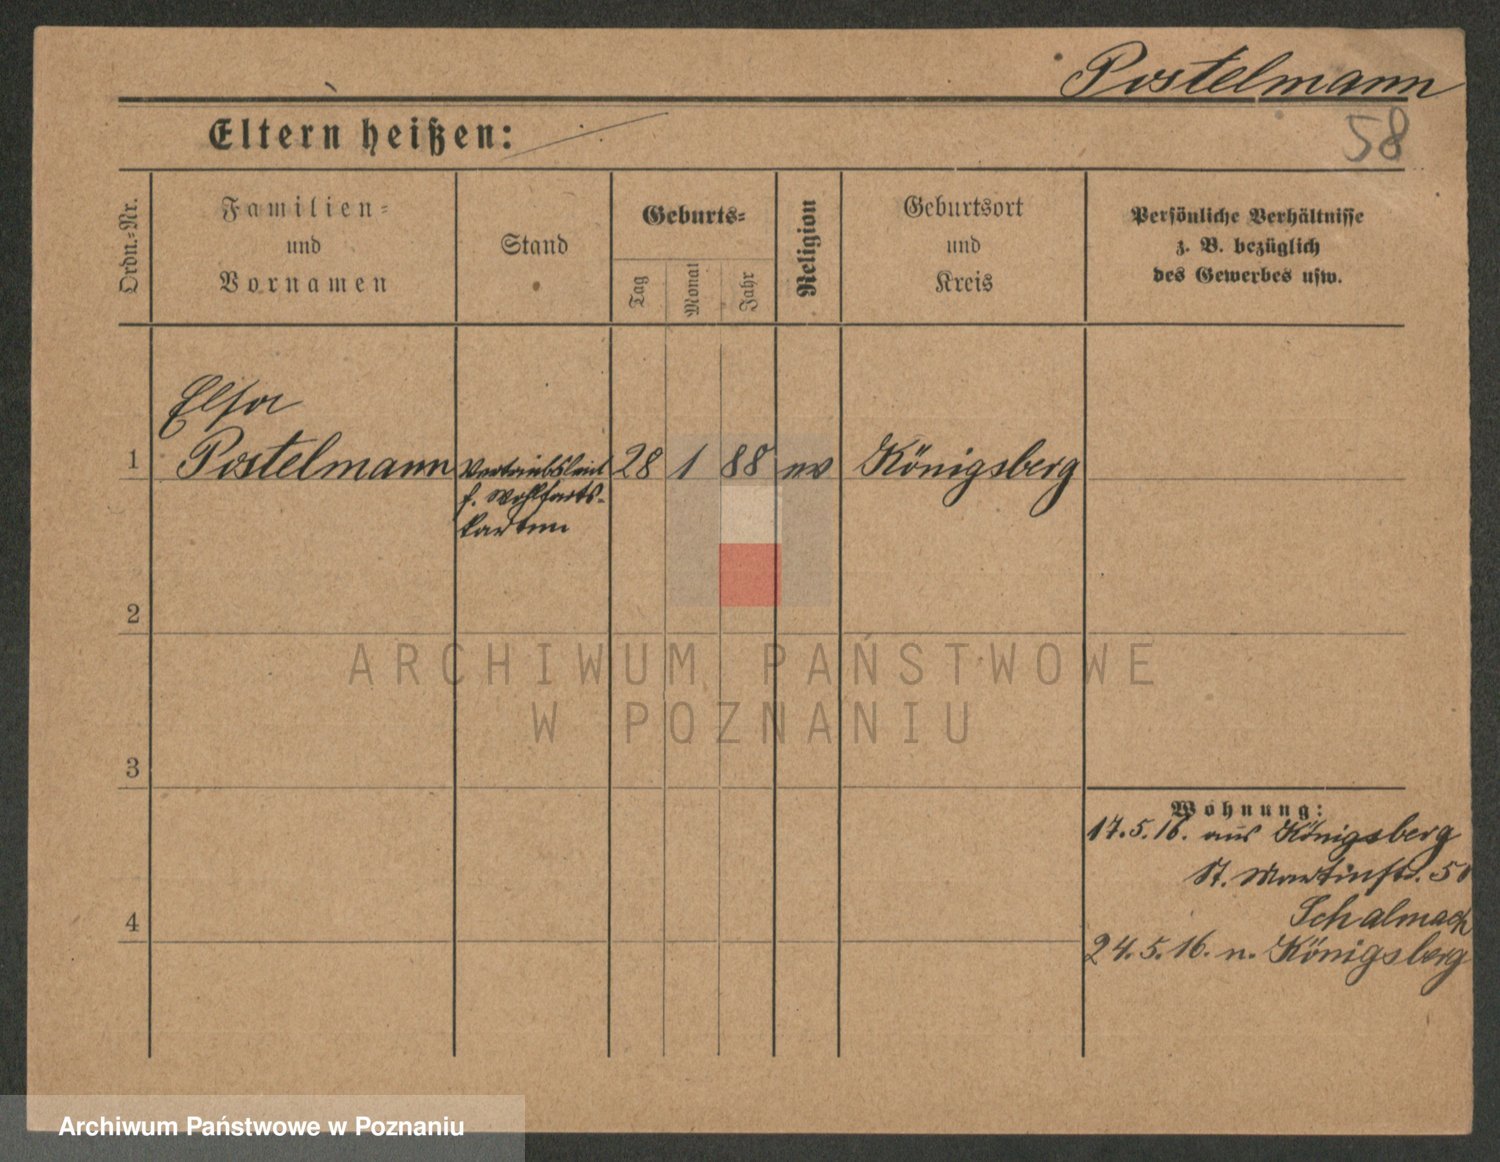 Postelmann
Eltern heißen:
58
Ordn.-Nr.
Familien-
und
Vornamen
Stand
Geburts-
Tag
Monat
Jahr
Religion
Geburtsort
und
Kreis
Persönliche Verhältnisse
z. B. bezüglich
des Gewerbes usw.
Elsa
1 Postelmann 28 1 88 ev Königsberg
f. Wohlfarts-
karten
2
ARCHIWUM PAŃSTWOWE
W POZNANIU
3
Wohnung:
17.5.16. aus Königsberg
St. Martinstr. 50
Schalmach
4
24.5.16. n. Königsberg
Archiwum Państwowe w Poznaniu